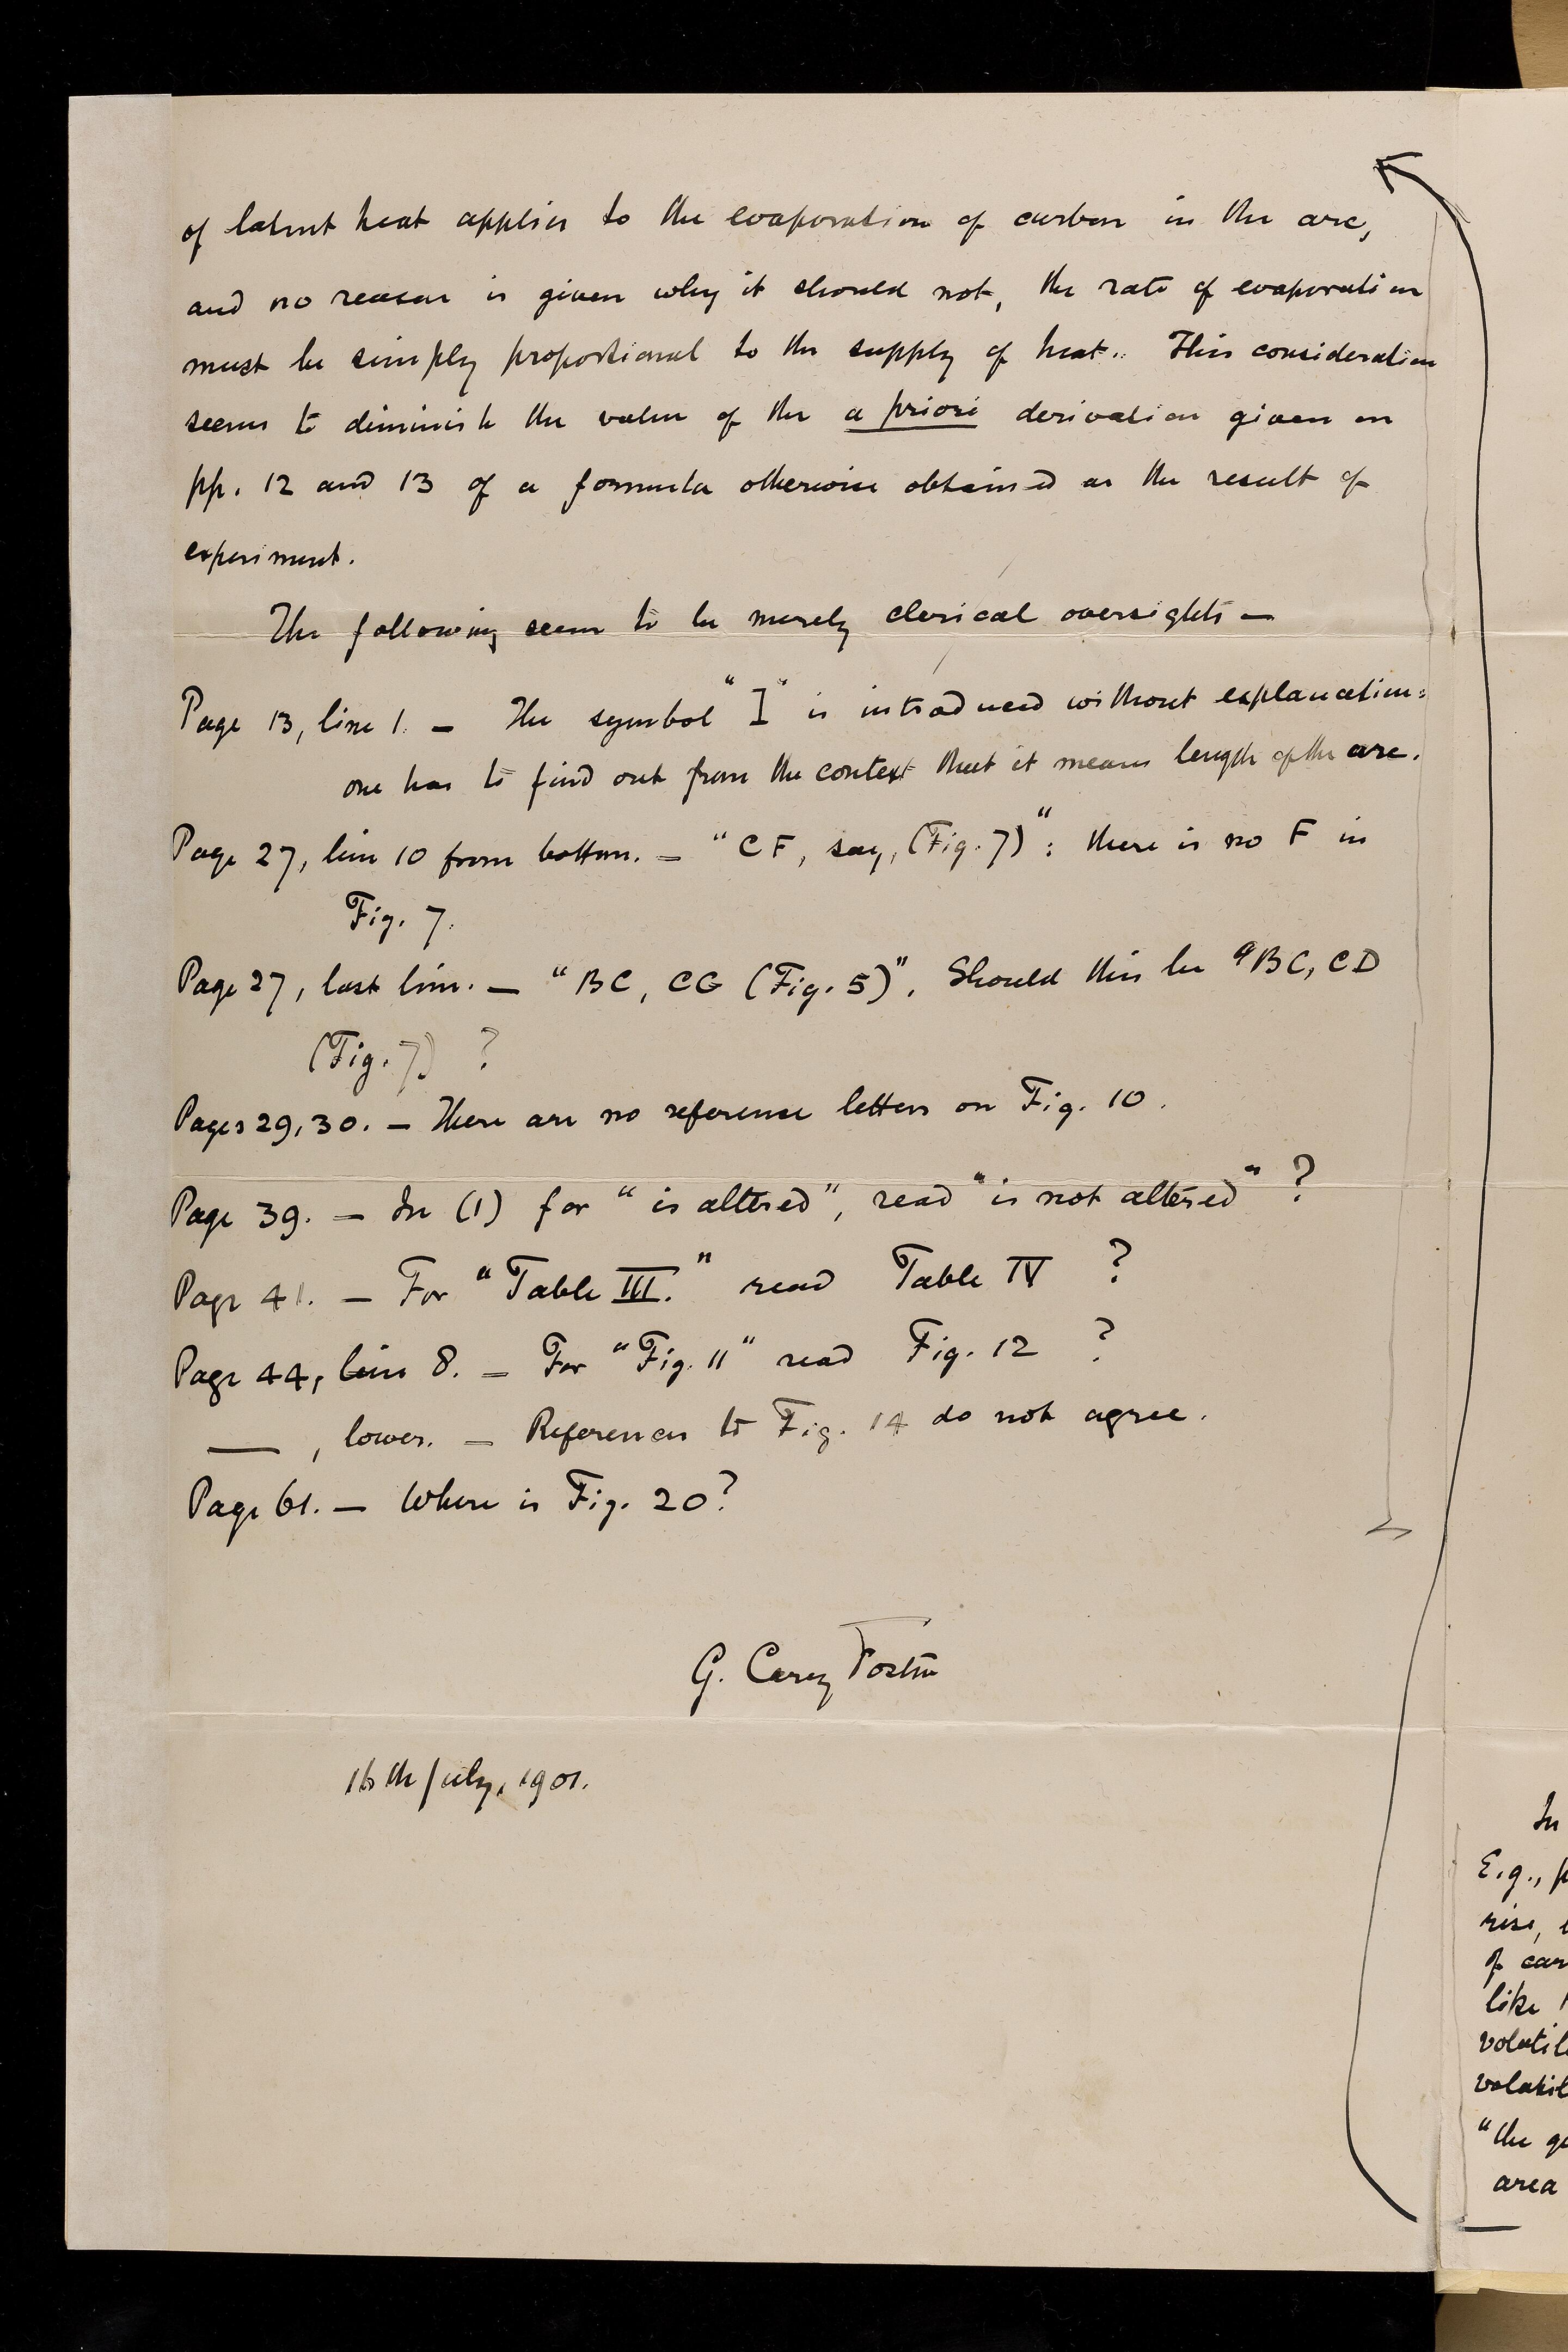 of latent heat applies to the evaporation of carbon in the arc,
and no reason is given why it should not, the rate of evaporation
must be simply proportional to the supply of heat. This consideration
seems to diminish the value of the a priori derivation given on
pp. 12 and 13 of a formula otherwise obtained as the result of
experiment.
The following seem to be merely clerical oversights —
Page 13, line 1. — The symbol "l" is introduced without explanation:
one has to find out from the context that it means length of the arc.
Page 27, line 10 from bottom. — "CF, say, (Fig. 7)": there is no F in
Fig. 7.
Page 27, last line. — "BC, CG (Fig. 5)". Should this be "BC, CD
(Fig. 7) ?
Pages 29, 30. — There are no reference letters on Fig. 10.
Page 39. — In (1) for "is altered", read "is not altered" ?
Page 41. — For "Table III." read Table IV ?
Page 44, line 8. — For "Fig. 11" read Fig. 12 ?
——, lower. — References to Fig. 14 do not agree.
Page 61. — Where is Fig. 20?
G. Carey Foster
16th July, 1901.
In
E.g., p
rise,
of car
like
volatil
volatil
"the
area